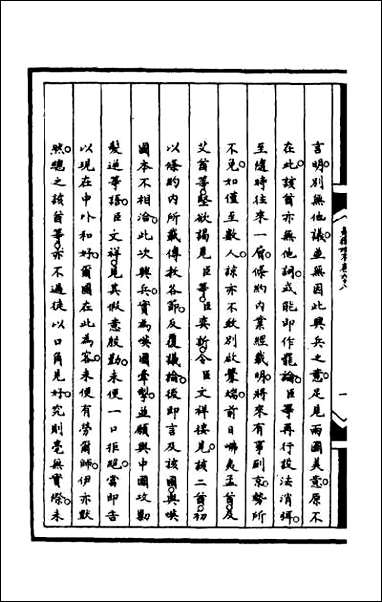 言明別無他議並無因此興兵之意足見兩國美意原不
在此該酋亦無他詞或能即作罷論臣等再行設法消弭
至隨時往來一層條約內業經載明將來有事到京勢所
不免如僅至數人諒亦不致別啟釁端前日㗶夷孟酋及
艾酋等堅欲謁見臣等臣奕訢令臣文祥接見該二酋初
以條約內所載傳教各節反覆議論後即言及該國與㖞
國本不相洽此次興兵實為㖞國牽掣並願與中國攻勦
髮逆等語臣文祥見其假意脧勸未便一口拒絕當即告
以現在中外和好爾國在此為客未便有勞爾師伊亦默
然總之該酋等亦不過徒以口角見好究則毫無實際未